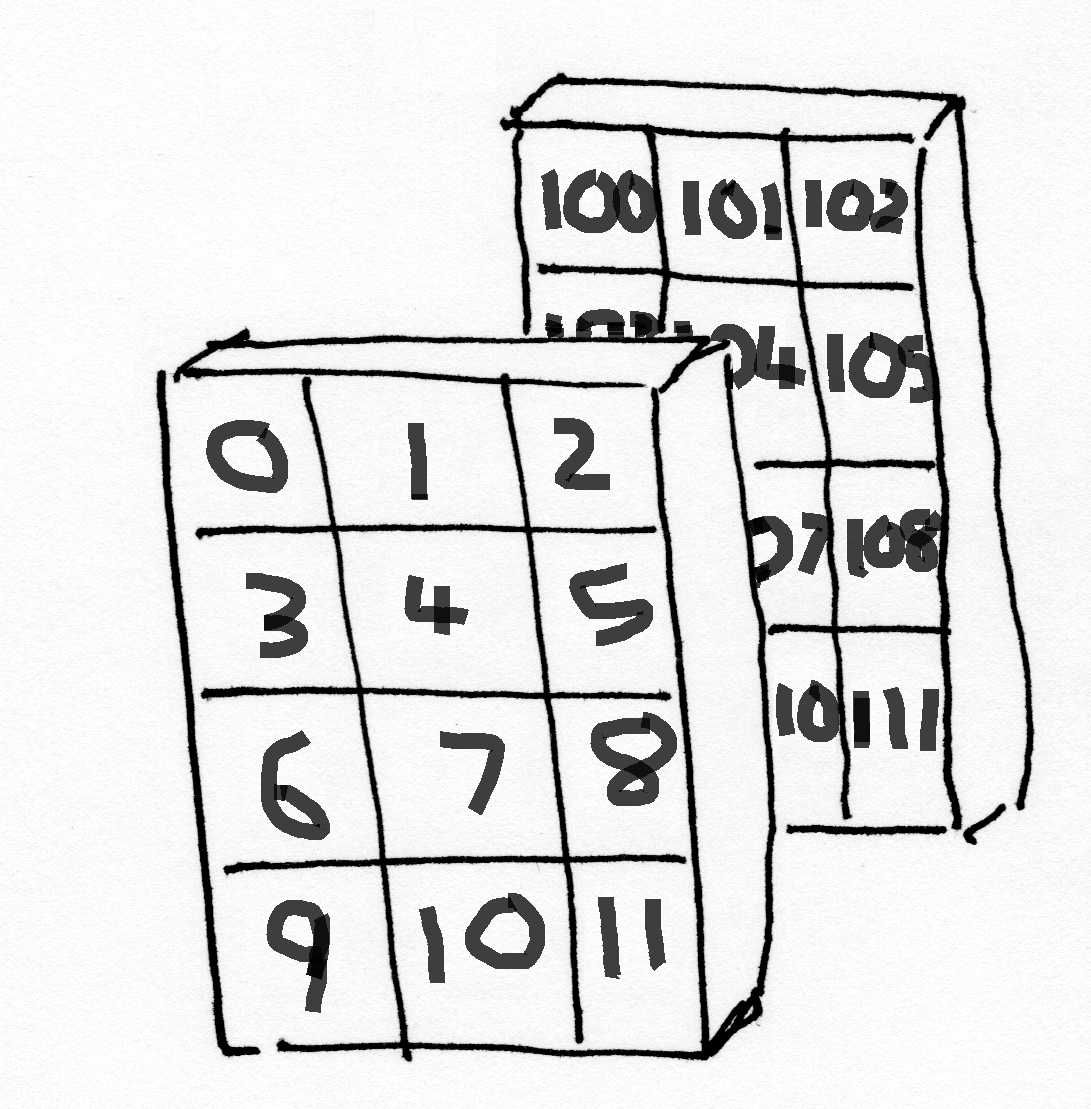 100 101 102
105
108
111
0 1 2
3 4 5
6 7 8
9 10 11